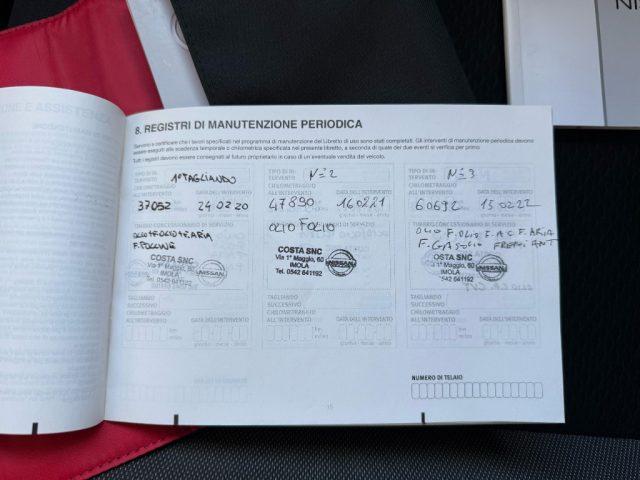 NIS
ONE E ASSISTENZA
8. REGISTRI DI MANUTENZIONE PERIODICA
Servono a certificare che i lavori specificati nel programma di manutenzione del Libretto di uso sono stati completati. Gli interventi di manutenzione periodica devono
essere eseguiti alla scadenza temporale o chilometrica specificata nel presente libretto, a seconda di quale dei due eventi si verifica per primo.
Tutti i registri devono essere consegnati al futuro proprietario in caso di un'eventuale vendita del veicolo.
TIPO DI IN-
TERVENTO
1° TAGLIANDO
CHILOMETRAGGIO
ALL'INTERVENTO
DATA DELL'INTERVENTO
37052
24 02 20
TIMBRO CONCESSIONARIO DI SERVIZIO
F. POLLINE
COSTA SNC
Via 1° Maggio, 60
IMOLA
Tel. 0542 641192
NISSAN
TAGLIANDO
SUCCESSIVO
CHILOMETRAGGIO
ALL'INTERVENTO
DATA DELL'INTERVENTO
km
miles
giorno - mese - anno
TIPO DI IN-
TERVENTO
N=2
CHILOMETRAGGIO
ALL'INTERVENTO
DATA DELL'INTERVENTO
47890
160221
OLIO F OLIO
COSTA SNC
Via 1° Maggio, 60
IMOLA
Tel. 0542 641192
NISSAN
TAGLIANDO
SUCCESSIVO
CHILOMETRAGGIO
ALL'INTERVENTO
DATA DELL'INTERVENTO
km
miles
giorno - mese - anno
TIPO DI IN-
TERVENTO
N=3
CHILOMETRAGGIO
ALL'INTERVENTO
DATA DELL'INTERVENTO
60692
150222
TIMBRO CONCESSIONARIO DI SERVIZIO
OLIO F. OLIO F. A C F. ARIA
F. GASOLIO FRENI ANT
COSTA SNC
Via 1° Maggio, 60
IMOLA
Tel. 0542 641192
NISSAN
TAGLIANDO
SUCCESSIVO
CHILOMETRAGGIO
ALL'INTERVENTO
DATA DELL'INTERVENTO
km
miles
giorno - mese - anno
NUMERO DI TELAIO
15